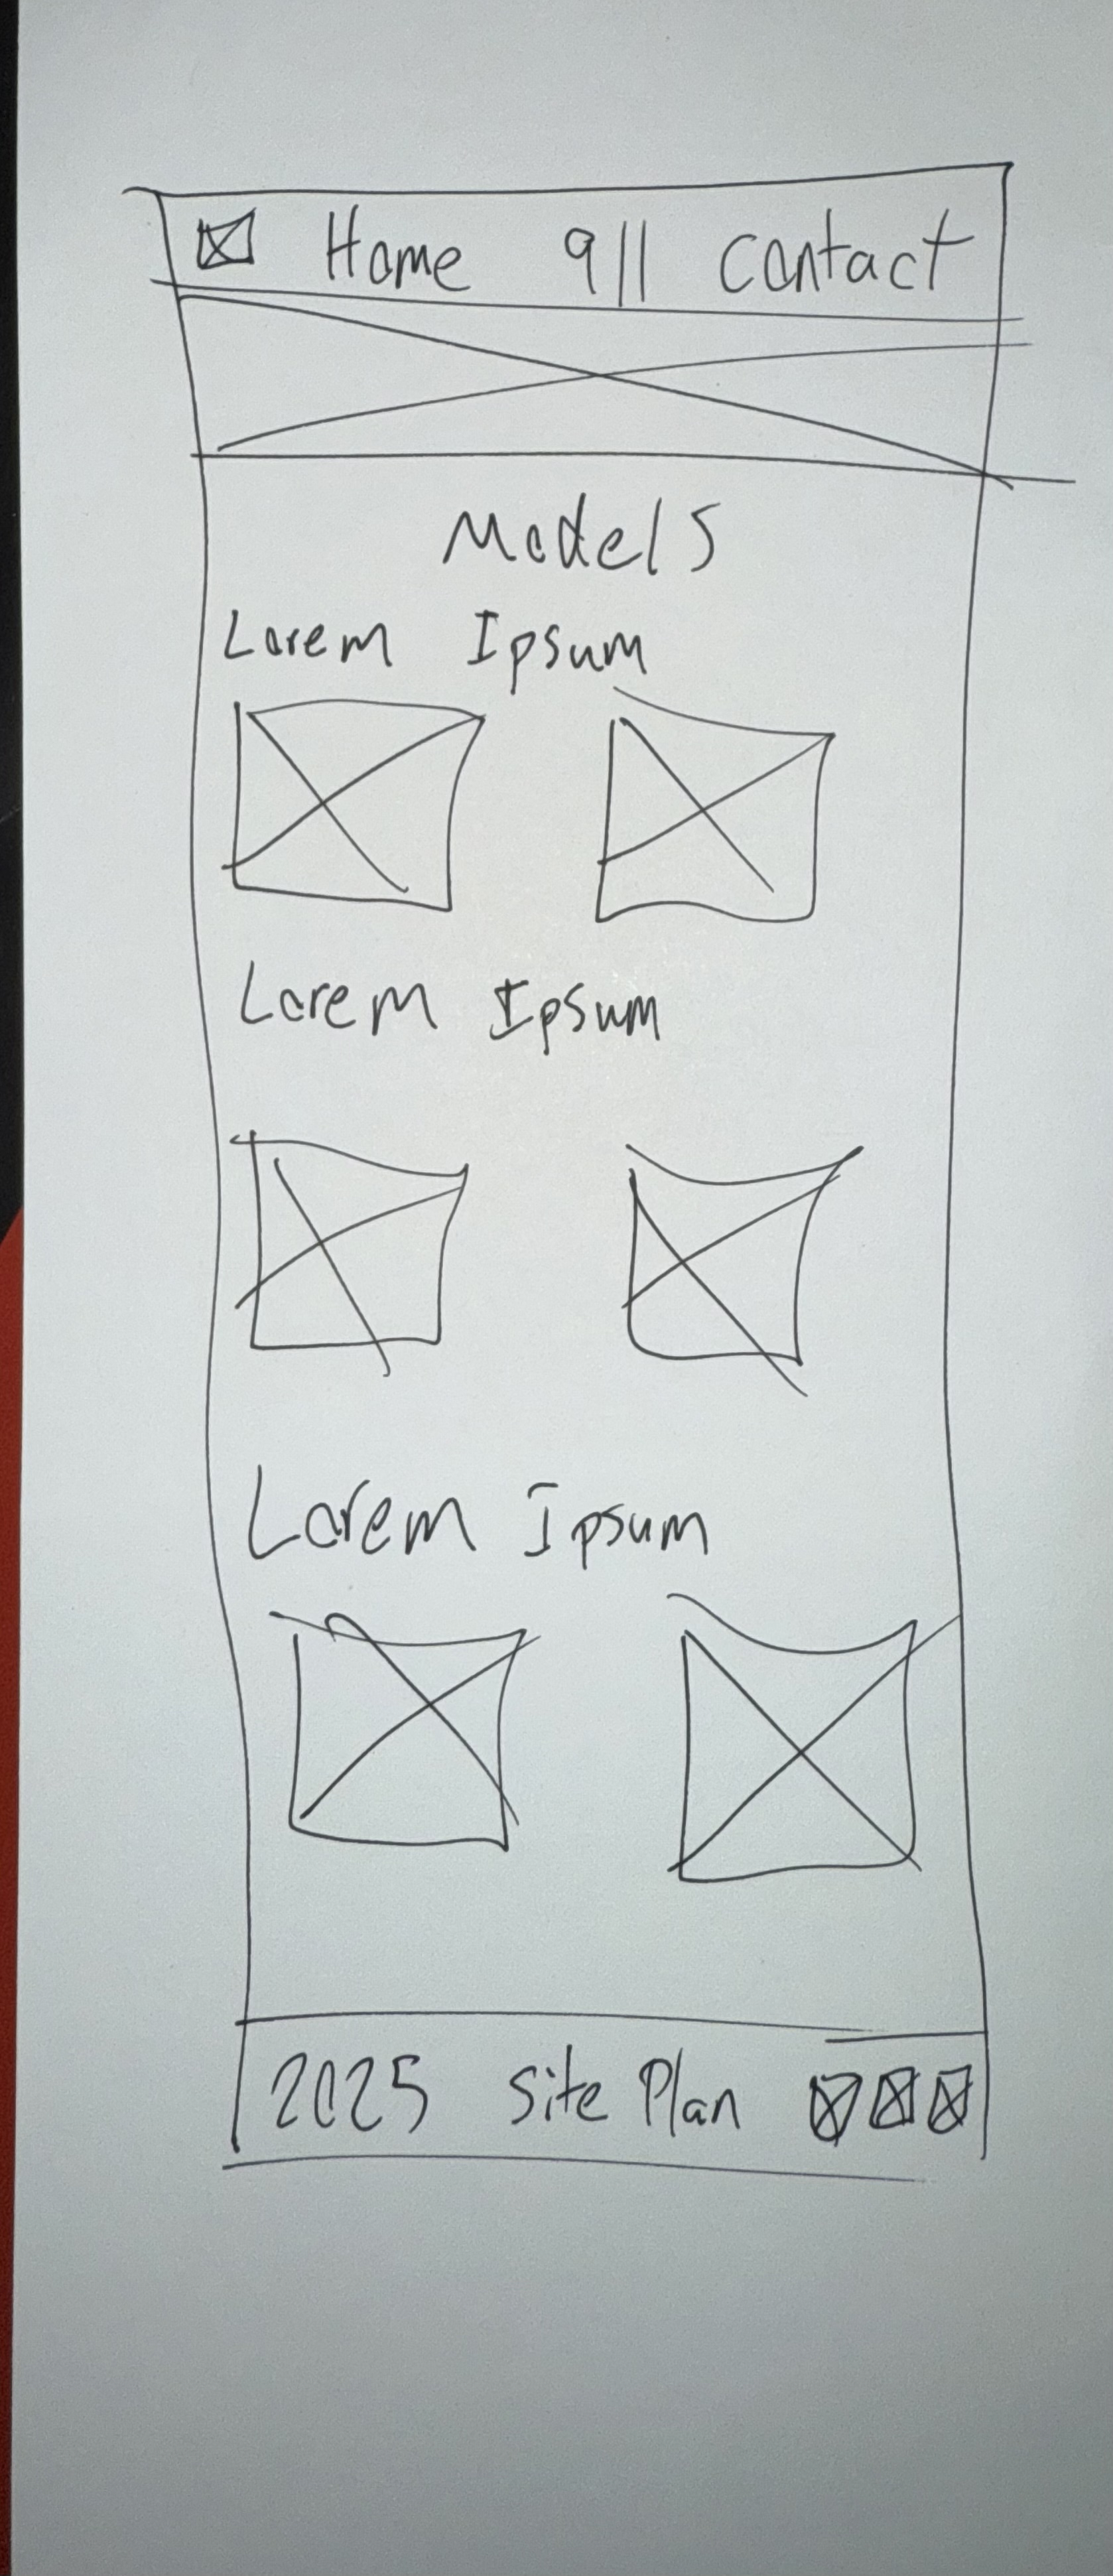 Home 911 Contact
Models
Lorem Ipsum
Lorem Ipsum
Lorem Ipsum
2025 Site Plan